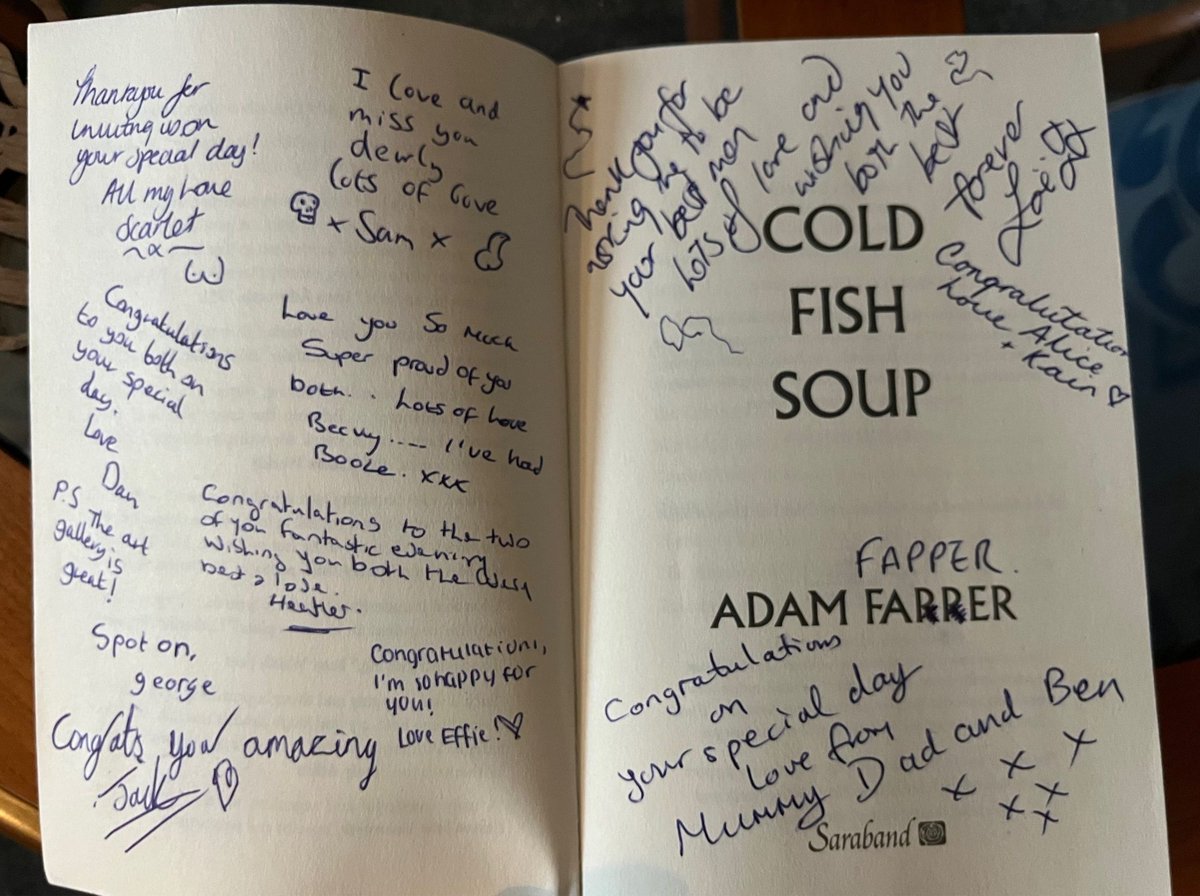 Thankyou for
inviting us on
your special day!
All my love
Scarlet
x
I love and
miss you
dearly
lots of love
x Sam x
Congratulations
to you both on
your special
day.
Love
Dan
P.S The art
gallery is
great!
Love you so much
Super proud of you
both.. Lots of love
Becky.... I've had
Booze. xxx
Congratulations to the two
of you fantastic evening
wishing you both the
best & love.
Heather.
Spot on,
george
Congratulations,
I'm so happy for
you!
Love Effie!
Congrats your amazing
Jack
Thank you for
asking me to be
your best man
Lots of love and
wishing you
both the
best
forever
COLD
FISH
SOUP
Congratulation
love Alice
+ Kain
FAPPER.
ADAM FARRER
Congratulations
on
your special day
love from
Mummy Dad and Ben
x x x
x x
Saraband